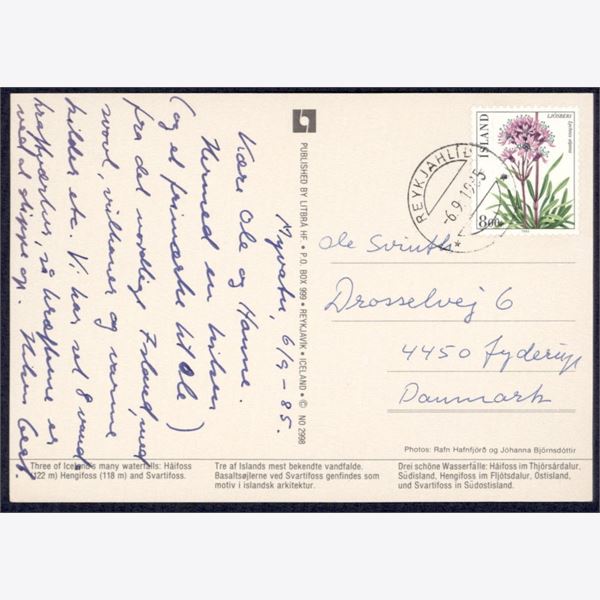 Myvatn, 6/9-85.
Kære Ole og Hanne.
Hermed en hilsen
(og et frimærke til Ole)
fra det nordlige Island, med
svovl, vulkaner og varme
kilder etc. Vi har set 8 vand-
kraftværker, så kræfterne er
ved at slippe op. Hilsen
PUBLISHED BY LITBRÁ HF. • P.O. BOX 999 • REYKJAVÍK • ICELAND • © NO 2998
REYKJAHLÍÐ
-6.9.1985
ÍSLAND
LJÓSBERI
Lychnis alpina
800
Ole Svinth
Drosselvej 6
4450 Jyderup
Danmark
Photos: Rafn Hafnfjörð og Jóhanna Björnsdóttir
Three of Iceland's many waterfalls: Háifoss
(122 m) Hengifoss (118 m) and Svartifoss.
Tre af Islands mest bekendte vandfalde.
Basaltsøjlerne ved Svartifoss genfindes som
motiv i islandsk arkitektur.
Drei schöne Wasserfälle: Háifoss im Thjórsárdalur,
Südisland, Hengifoss im Fljótsdalur, Ostisland,
und Svartifoss in Südostisland.